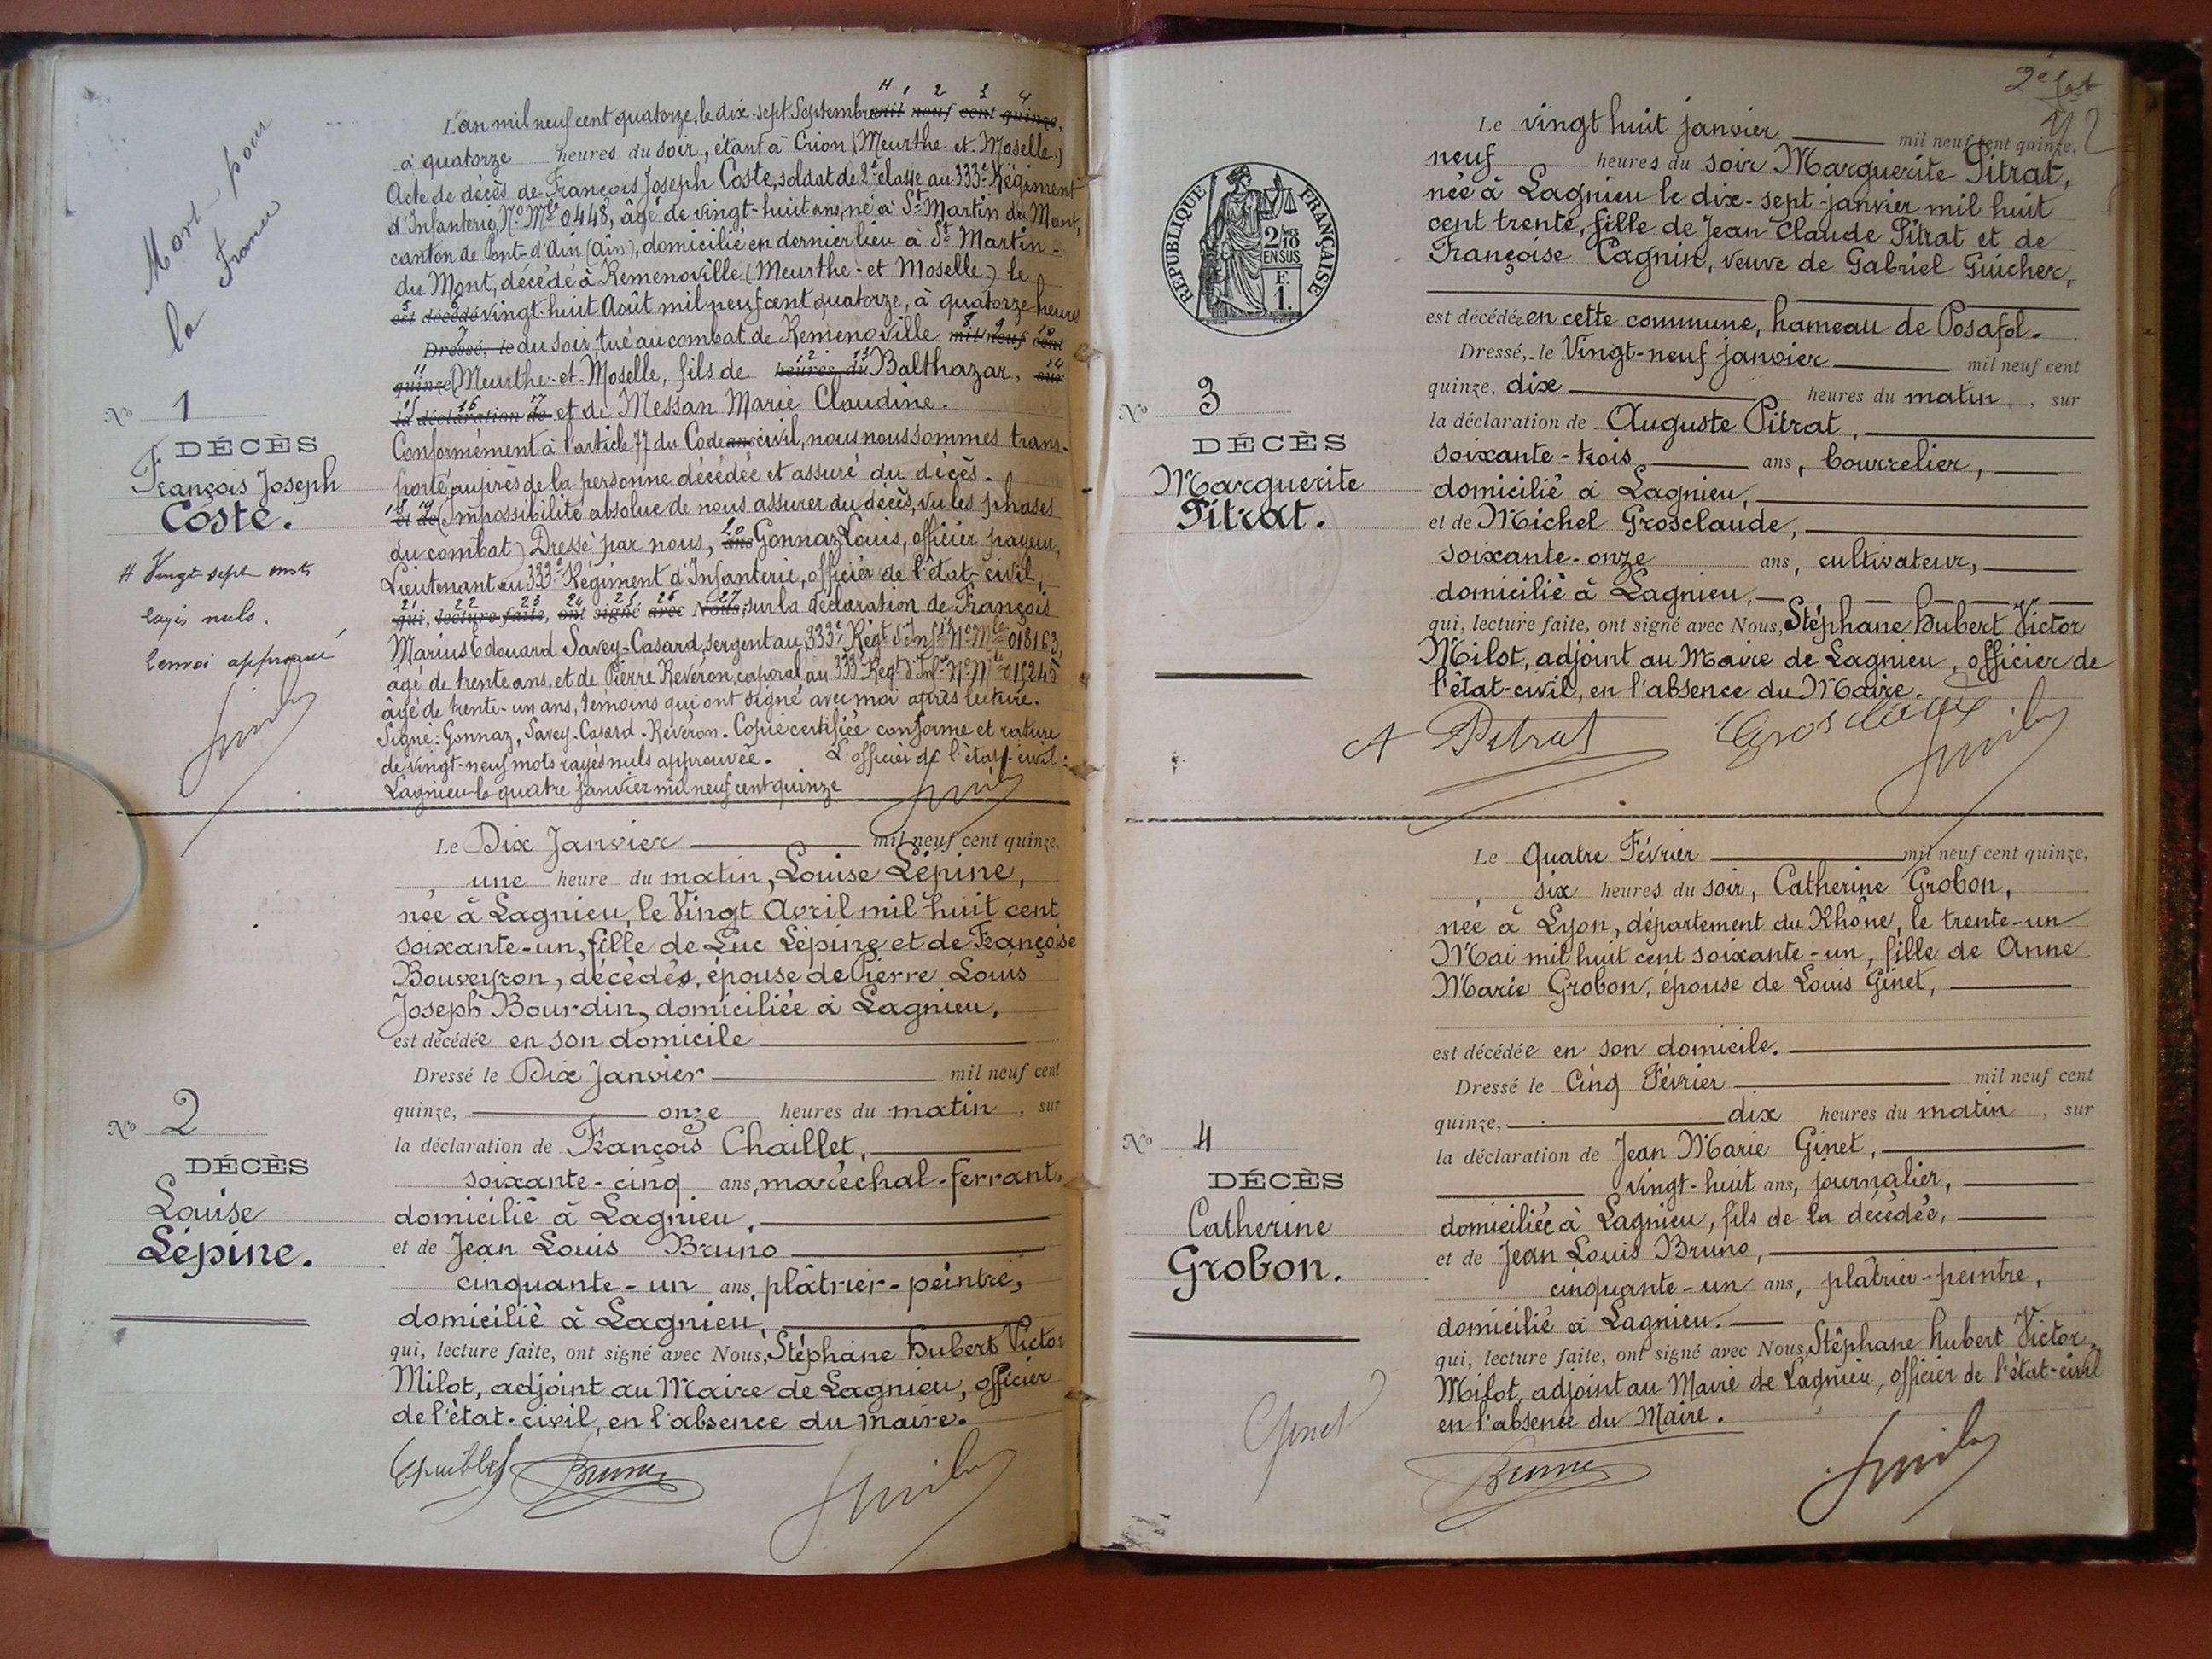 Mort pour
la France
L'an mil neuf cent quatorze, le dix-sept Septembre mil neuf cent quinze,
à quatorze heures du soir, étant à Crion (Meurthe-et-Moselle)
Acte de décès de François Joseph Coste, soldat de 2e classe au 333e Régiment
d'Infanterie, No Mle 0448, âgé de vingt-huit ans, né à St Martin du Mont,
canton de Pont-d'Ain (Ain), domicilié en dernier lieu à St Martin-
du Mont, décédé à Remenoville (Meurthe-et Moselle) le
est décédé vingt-huit Août mil neuf cent quatorze, à quatorze heures
Dressé, le du soir tué au combat de Remenoville mil neuf cent
quinze (Meurthe-et-Moselle, fils de heures du Balthazar, sur
la déclaration de et de Messan Marie Claudine.
Conformément à l'article 77 du Code ans civil, nous nous sommes trans-
porté auprès de la personne décédée et assuré du décès.
et de (Impossibilité absolue de nous assurer du décès, vu les phases
du combat) Dressé par nous, ans Gonnaz Louis, officier payeur,
Lieutenant au 333e Régiment d'Infanterie, officier de l'état-civil,
qui, lecture faite, ont signé avec Nous, sur la déclaration de François
Marius Edouard Savey-Casard, sergent au 333e Régt d'Infie No Mle 018163,
âgé de trente ans, et de Pierre Reveron, caporal au 333e Regt d'Infie No Mle 015245
âgé de trente-un ans, témoins qui ont signé avec moi après lecture.
Signé: Gonnaz, Savey-Casard. Reveron. Copie certifiée conforme et rature
de vingt-neuf mots rayés nuls approuvée. L'officier de l'état-civil:
Lagnieu le quatre Janvier mil neuf cent quinze
No 1
DÉCÈS
François Joseph
Coste.
H Vingt sept mots
rayés nuls.
Renvoi approuvé
Le Dix Janvier mil neuf cent quinze,
une heure du matin, Louise Lépine,
née à Lagnieu, le Vingt Avril mil huit cent
soixante-un, fille de Luc Lépine et de Françoise
Bouveyron, décédés, épouse de Pierre Louis
Joseph Bourdin, domiciliée à Lagnieu,
est décédée en son domicile
Dressé le Dix Janvier mil neuf cent
quinze, onze heures du matin, sur
la déclaration de François Chaillet,
soixante-cinq ans, maréchal-ferrant,
domicilié à Lagnieu,
et de Jean Louis Bruno
cinquante-un ans, plâtrier-peintre,
domicilié à Lagnieu,
qui, lecture faite, ont signé avec Nous, Stéphane Hubert Victor
Milot, adjoint au Maire de Lagnieu, officier
de l'état-civil, en l'absence du maire.
Bruno
No 2
DÉCÈS
Louise
Lépine.
RÉPUBLIQUE FRANÇAISE
2/10
EN SUS
F.
1.
Le vingt huit janvier mil neuf cent quinze,
neuf heures du soir Marguerite Pitrat,
née à Lagnieu le dix-sept janvier mil huit
cent trente, fille de Jean Claude Pitrat et de
Françoise Cagnin, veuve de Gabriel Guicher,
est décédée en cette commune, hameau de Posafol.
Dressé, le Vingt-neuf janvier mil neuf cent
quinze, dix heures du matin, sur
la déclaration de Auguste Pitrat,
soixante-trois ans, bourrelier,
domicilié à Lagnieu,
et de Michel Grosclaude,
soixante-onze ans, cultivateur,
domicilié à Lagnieu,
qui, lecture faite, ont signé avec Nous, Stéphane Hubert Victor
Milot, adjoint au Maire de Lagnieu, officier de
l'état-civil, en l'absence du Maire.
A Pitrat Grosclaude
No 3
DÉCÈS
Marguerite
Pitrat.
Le Quatre Février mil neuf cent quinze,
six heures du soir, Catherine Grobon,
née à Lyon, département du Rhône, le trente-un
Mai mil huit cent soixante-un, fille de Anne
Marie Grobon, épouse de Louis Ginet,
est décédée en son domicile.
Dressé le Cinq Février mil neuf cent
quinze, dix heures du matin, sur
la déclaration de Jean Marie Ginet,
vingt-huit ans, journalier,
domicilié à Lagnieu, fils de la décédée,
et de Jean Louis Bruno,
cinquante-un ans, plâtrier-peintre,
domicilié à Lagnieu.
qui, lecture faite, ont signé avec Nous, Stéphane Hubert Victor
Milot, adjoint au Maire de Lagnieu, officier de l'état-civil
en l'absence du Maire.
Ginet
Bruno
No 4
DÉCÈS
Catherine
Grobon.